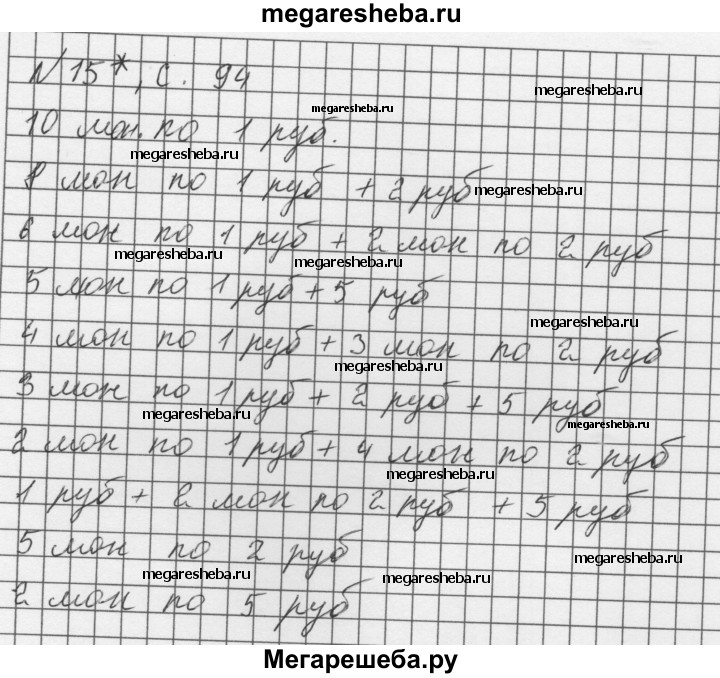 megaresheba.ru
№ 15*, с. 94
megaresheba.ru
megaresheba.ru
10 мон. по 1 руб.
megaresheba.ru
8 мон по 1 руб + 2 руб
megaresheba.ru
6 мон по 1 руб + 2 мон по 2 руб
megaresheba.ru
megaresheba.ru
5 мон по 1 руб + 5 руб
megaresheba.ru
4 мон по 1 руб + 3 мон по 2 руб
megaresheba.ru
3 мон по 1 руб + 2 руб + 5 руб
megaresheba.ru
megaresheba.ru
2 мон по 1 руб + 4 мон по 2 руб
megaresheba.ru
1 руб + 2 мон по 2 руб + 5 руб
5 мон по 2 руб
megaresheba.ru
megaresheba.ru
megaresheba.ru
2 мон по 5 руб
Мегарешеба.ру